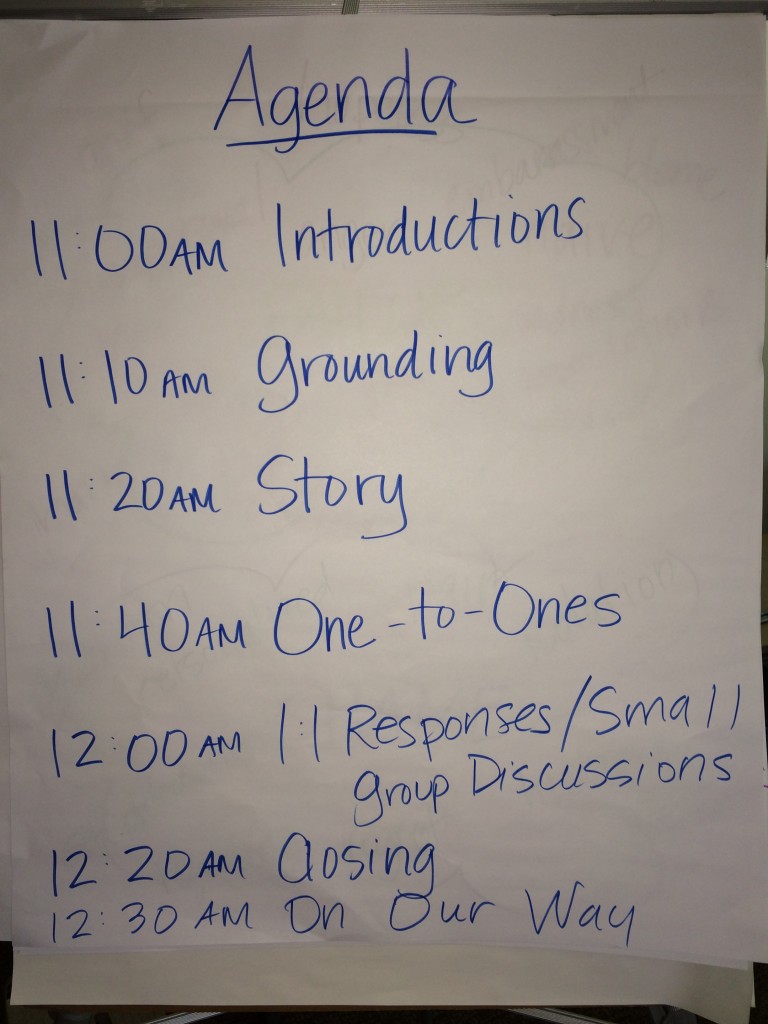 Agenda
11:00AM Introductions
11:10AM Grounding
11:20AM Story
11:40AM One-to-Ones
12:00AM 1:1 Responses/Small
group Discussions
12:20AM Closing
12:30AM On Our Way